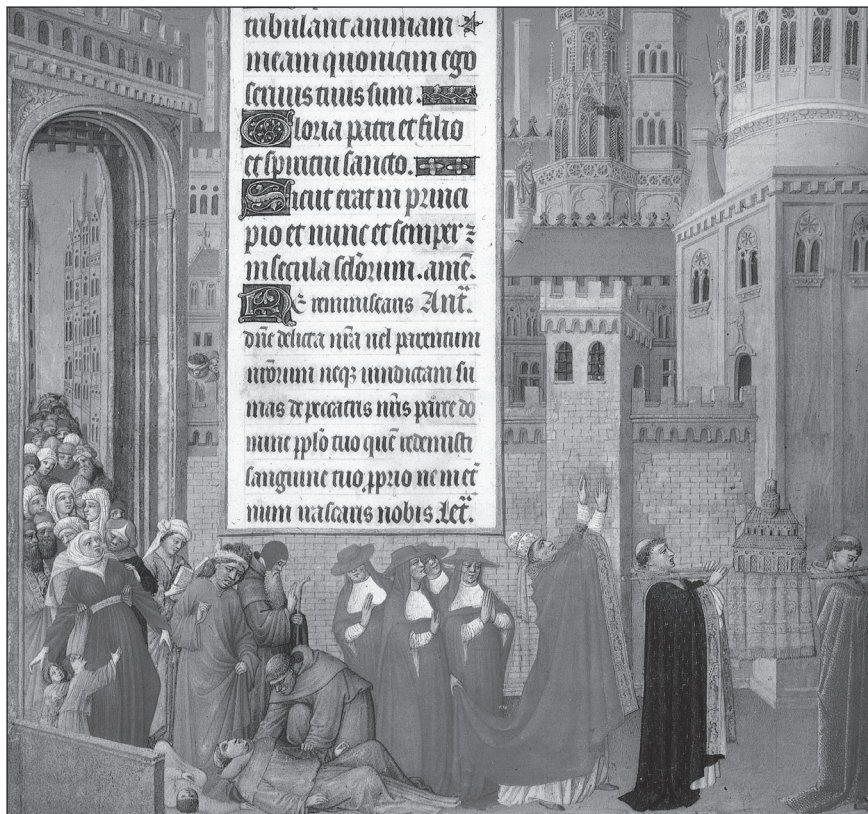 tribulant animam
meam quoniam ego
seruus tuus sum.
Gloria patri et filio
et spiritui sancto.
Sicut erat in princi
pio et nunc et semper ⁊
in secula sclōrum. amē.
Ne reminiscaris Ant.
dn̄e delicta nr̄a uel parentum
nrōrum neqꝫ uindictam su
mas de peccatis nr̄is parce do
mine pplō tuo quē redemisti
sanguine tuo pprio ne in et̄
num irascaris nobis. Let.